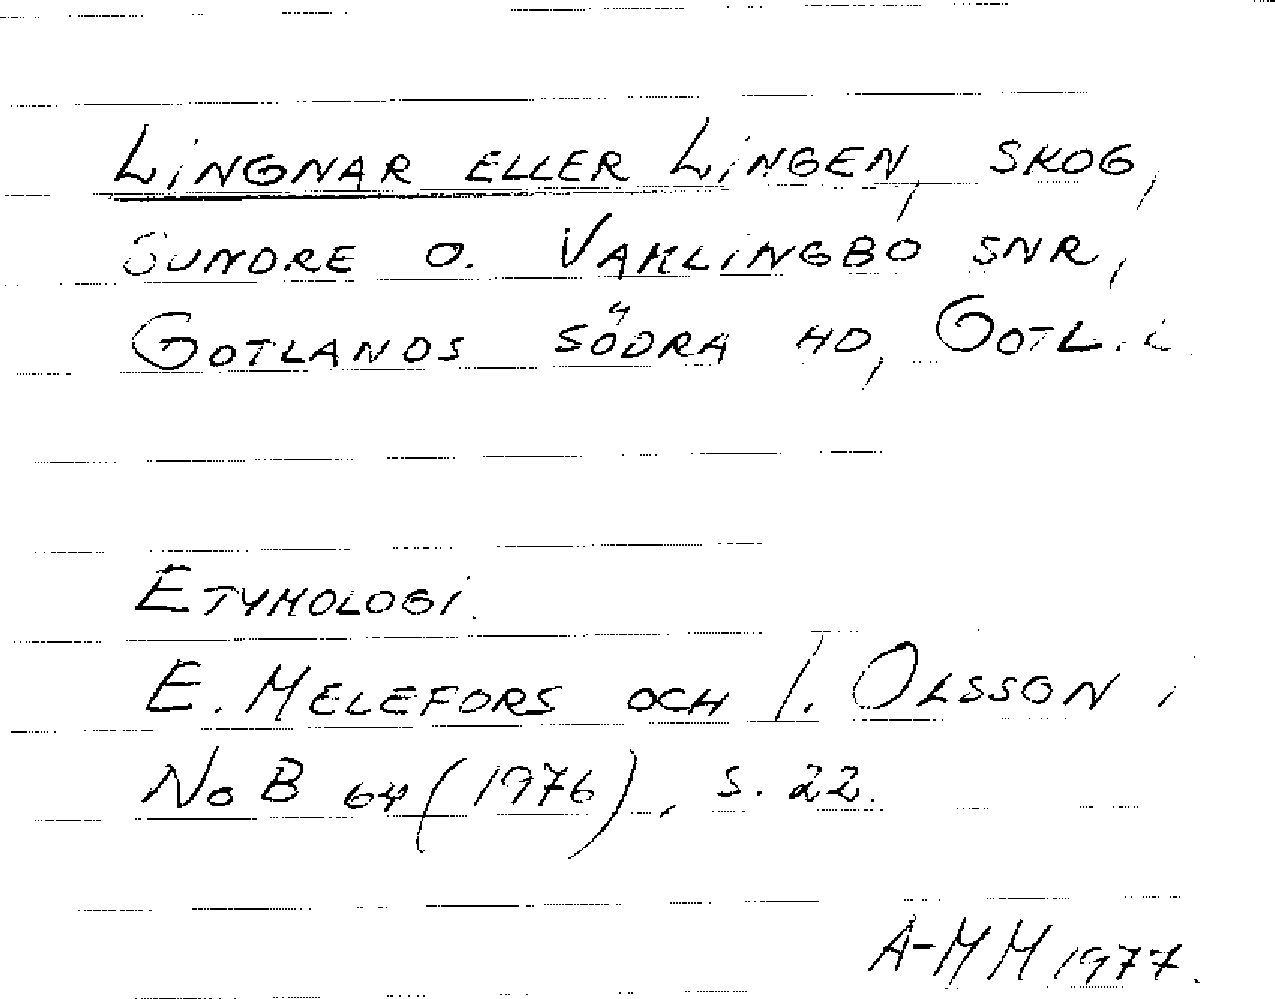 LINGNAR ELLER LINGEN, SKOG,
SUNDRE O. VAMLINGBO SNR,
GOTLANDS SÖDRA HD, GOTL. L
ETYMOLOGI.
E. MELEFORS OCH I. OLSSON i
NoB 64 (1976), S. 22.
A-MM 1977.